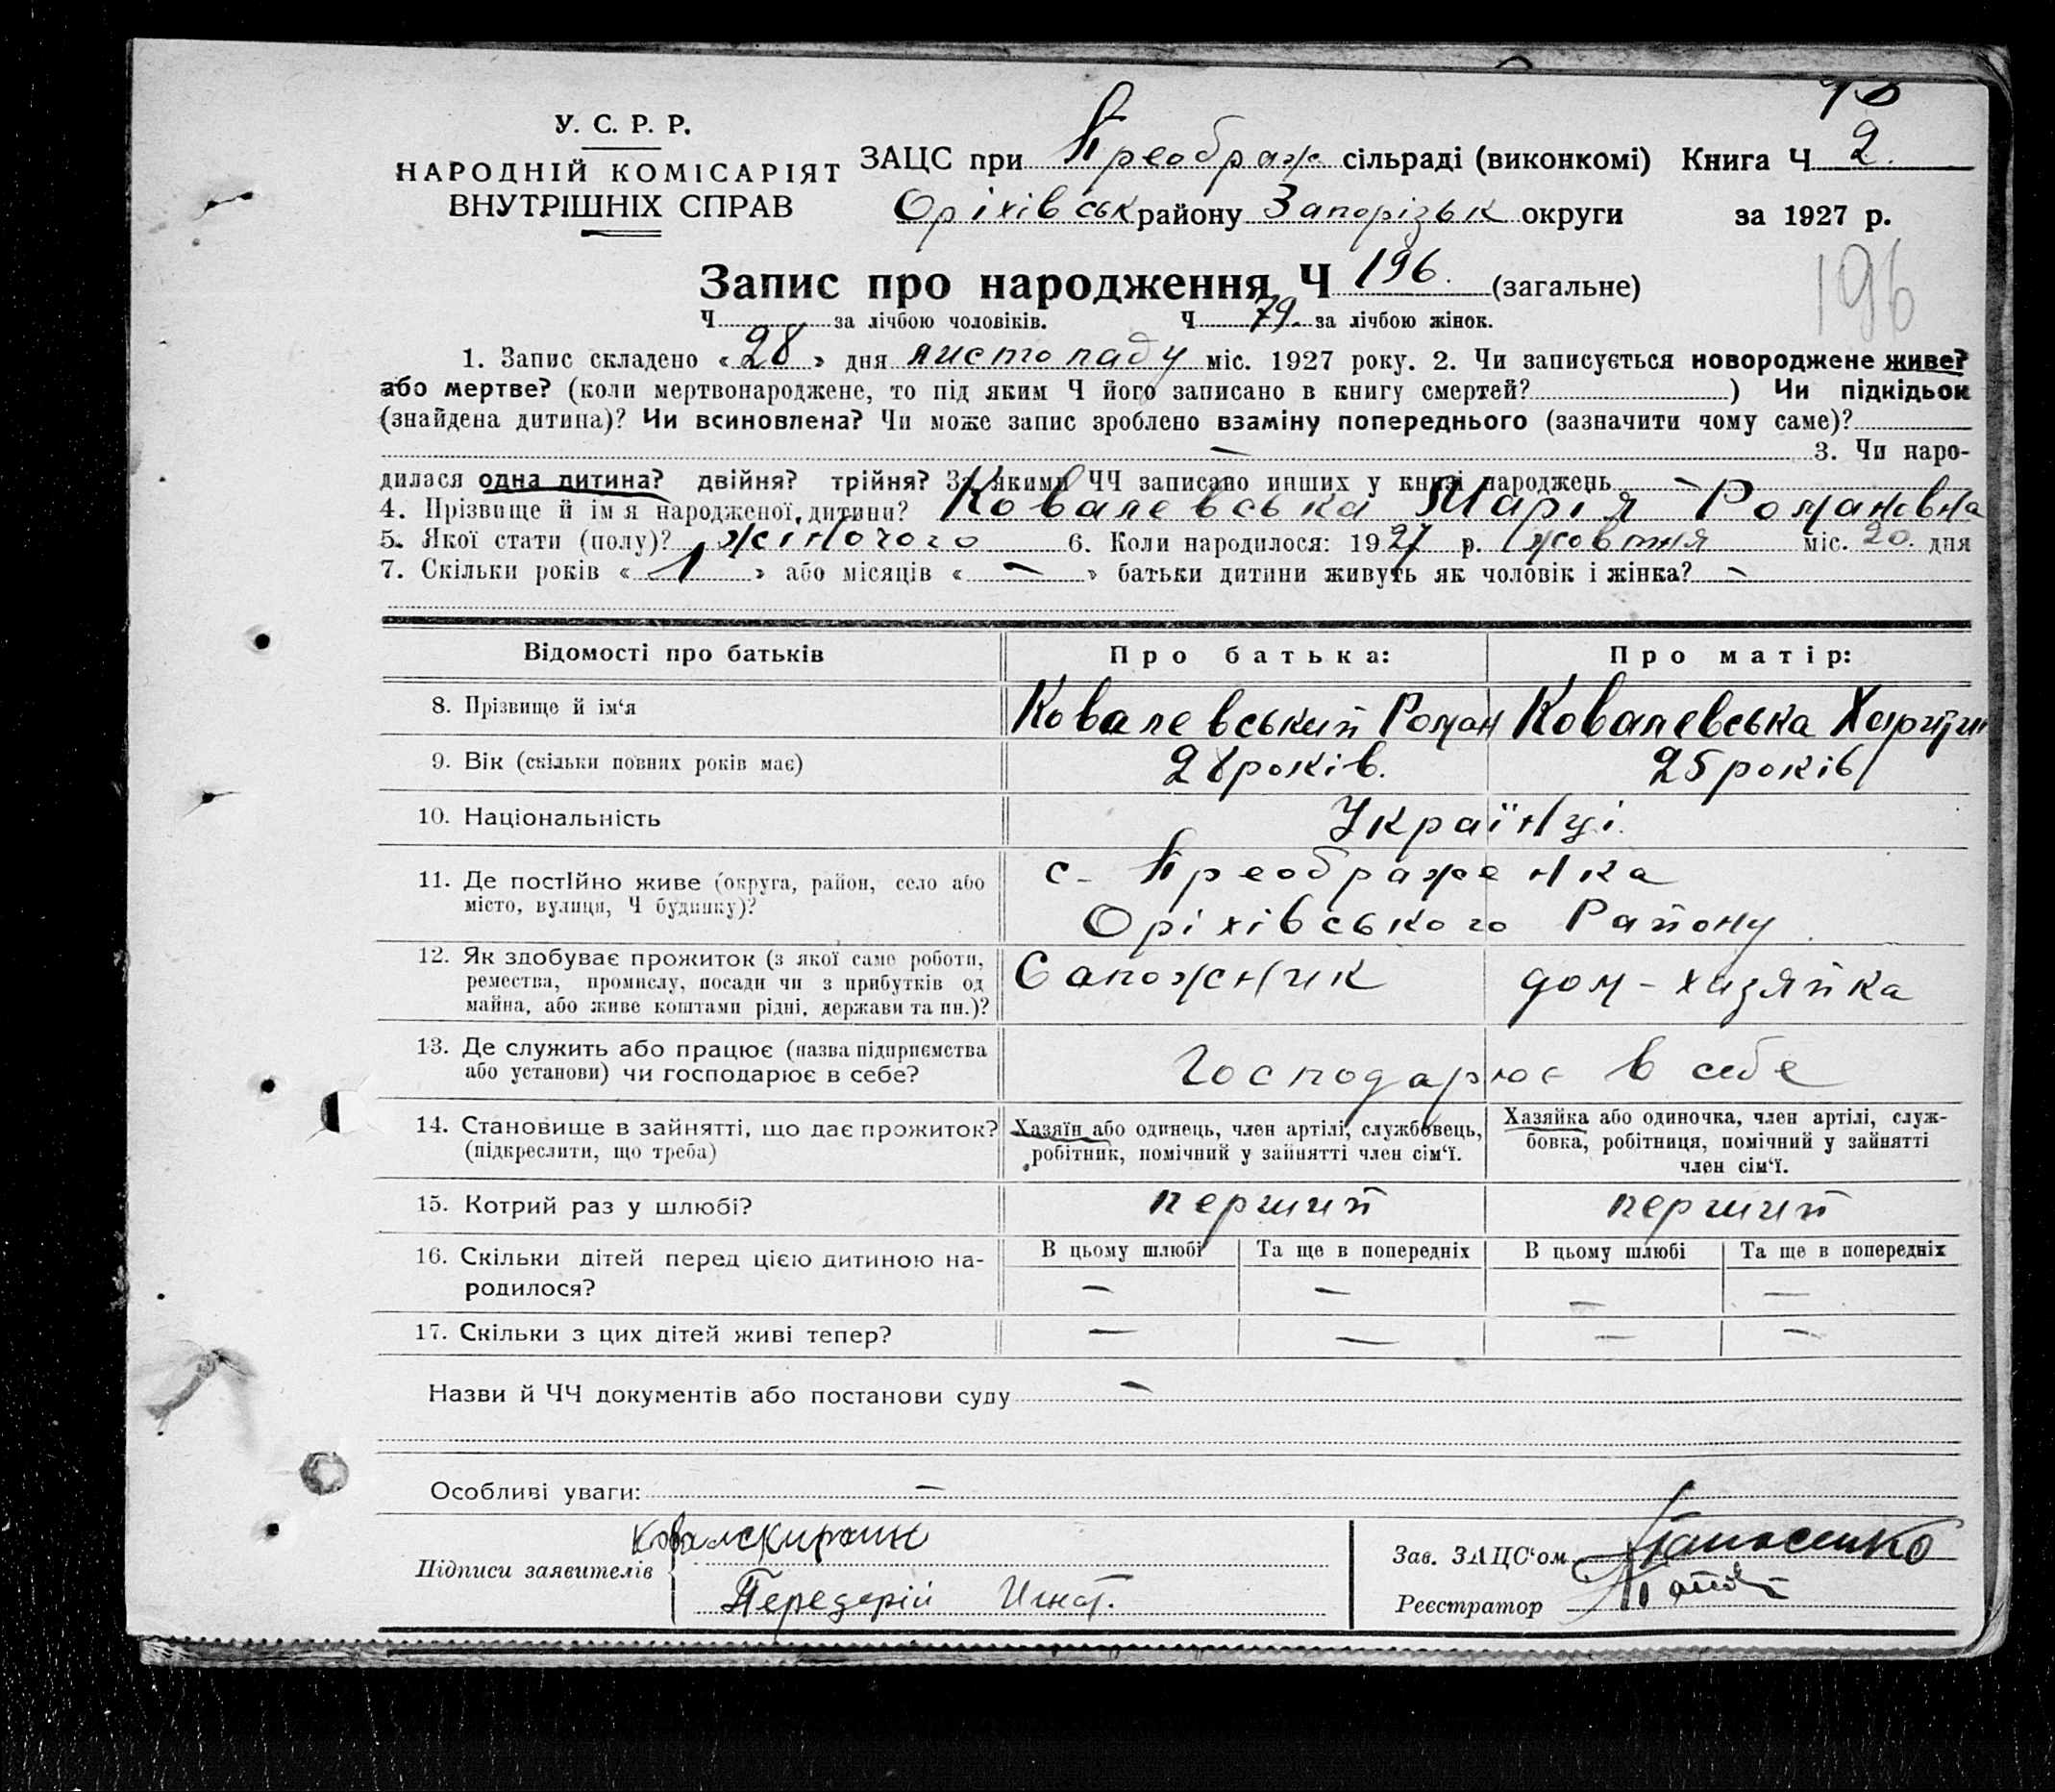 У. С. Р. Р.
НАРОДНІЙ КОМІСАРІЯТ
ВНУТРІШНІХ СПРАВ
ЗАЦС при Преображ сільраді (виконкомі) Книга Ч 2.
Оріхівськ району Запорізьк округи за 1927 р.
Запис про народження Ч 196. (загальне)
196
Ч за лічбою чоловіків. Ч 79. за лічбою жінок.
1. Запис складено «28» дня листопаду міс. 1927 року. 2. Чи записується новороджене живе?
або мертве? (коли мертвонароджене, то під яким Ч його записано в книгу смертей? ) Чи підкідьок
(знайдена дитина)? Чи всиновлена? Чи може запис зроблено взаміну попереднього (зазначити чому саме)?
— 3. Чи наро-
дилася одна дитина? двійня? трійня? За якими ЧЧ записано инших у книзі народжень —
4. Прізвище й ім я народженої дитини? Ковалевська Марія Романовна
5. Якої стати (полу)? жіночого 6. Коли народилося: 1927 р. жовтня міс. 20. дня
7. Скільки років « 1 » або місяців « — » батьки дитини живуть як чоловік і жінка? —
Відомості про батьків Про батька: Про матір:
8. Прізвище й ім‘я Ковалевський Роман Ковалевська
9. Вік (скільки повних років має) 28 років. 25 років
10. Національність Українці.
11. Де постійно живе (округа, район, село або
місто, вулиця, Ч будинку)?
с. Преображенка
Оріхівського Району
12. Як здобуває прожиток (з якої саме роботи,
ремества, промислу, посади чи з прибутків од
майна, або живе коштами рідні, держави та ин.)?
Сапожник дом-хазяйка
13. Де служить або працює (назва підприємства
або установи) чи господарює в себе?
Господарює в себе
14. Становище в зайнятті, що дає прожиток?
(підкреслити, що треба)
Хазяїн або одинець, член артілі, службовець,
робітник, помічний у зайнятті член сім‘ї.
Хазяйка або одиночка, член артілі, служ-
бовка, робітниця, помічний у зайнятті
член сім‘ї.
15. Котрий раз у шлюбі? перший перший
16. Скільки дітей перед цією дитиною на-
родилося?
В цьому шлюбі Та ще в попередніх В цьому шлюбі Та ще в попередніх
— — — —
17. Скільки з цих дітей живі тепер? — — — —
Назви й ЧЧ документів або постанови суду —
Особливі уваги: —
Підписи заявителів
Передерій Игнат.
Зав. ЗАЦС‘ом
Реєстратор